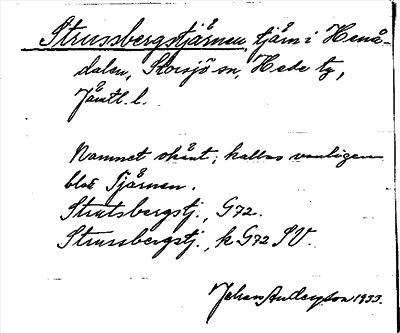 Strussbergstjärnen, tjärn i Henå-
dalen, Storsjö sn, Hede tg,
Jämtl. l.
Namnet okänt; kallas vanligen
blott Tjärnen.
Strutsbergstj., G72.
Strussbergstj., k G72 SV.
Johan Anderzson 1933.